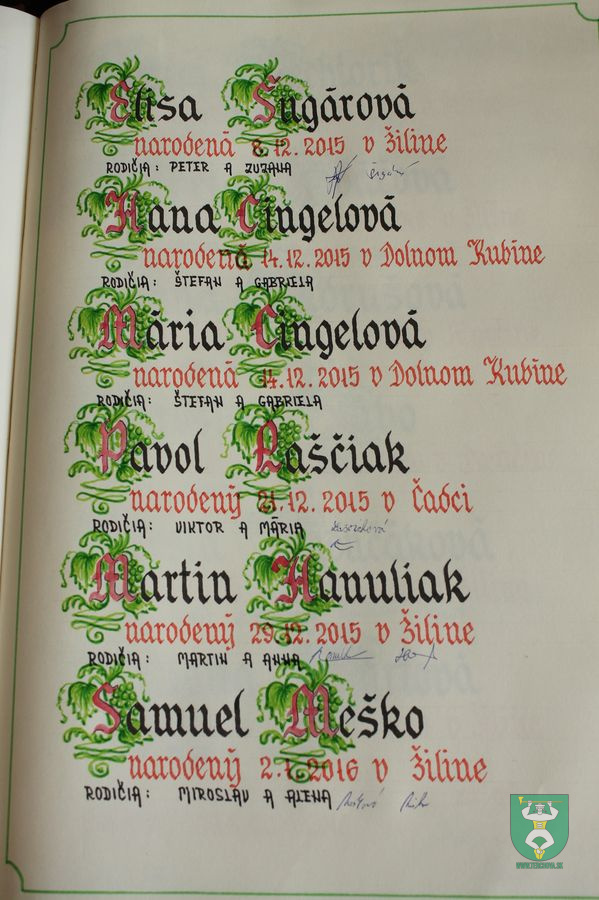 Elisa Šugárová
narodená 8.12.2015 v Žiline
RODIČIA: PETER A ZUZANA
Hana Cingelová
narodená 14.12.2015 v Dolnom Kubíne
RODIČIA: ŠTEFAN A GABRIELA
Mária Cingelová
narodená 14.12.2015 v Dolnom Kubíne
RODIČIA: ŠTEFAN A GABRIELA
Pavol Laščiak
narodený 21.12.2015 v Čadci
RODIČIA: VIKTOR A MÁRIA
Martin Hanuliak
narodený 29.12.2015 v Žiline
RODIČIA: MARTIN A ANNA
Samuel Meško
narodený 2.1.2016 v Žiline
RODIČIA: MIROSLAV A ALENA
WWW.TERCHOVA.SK